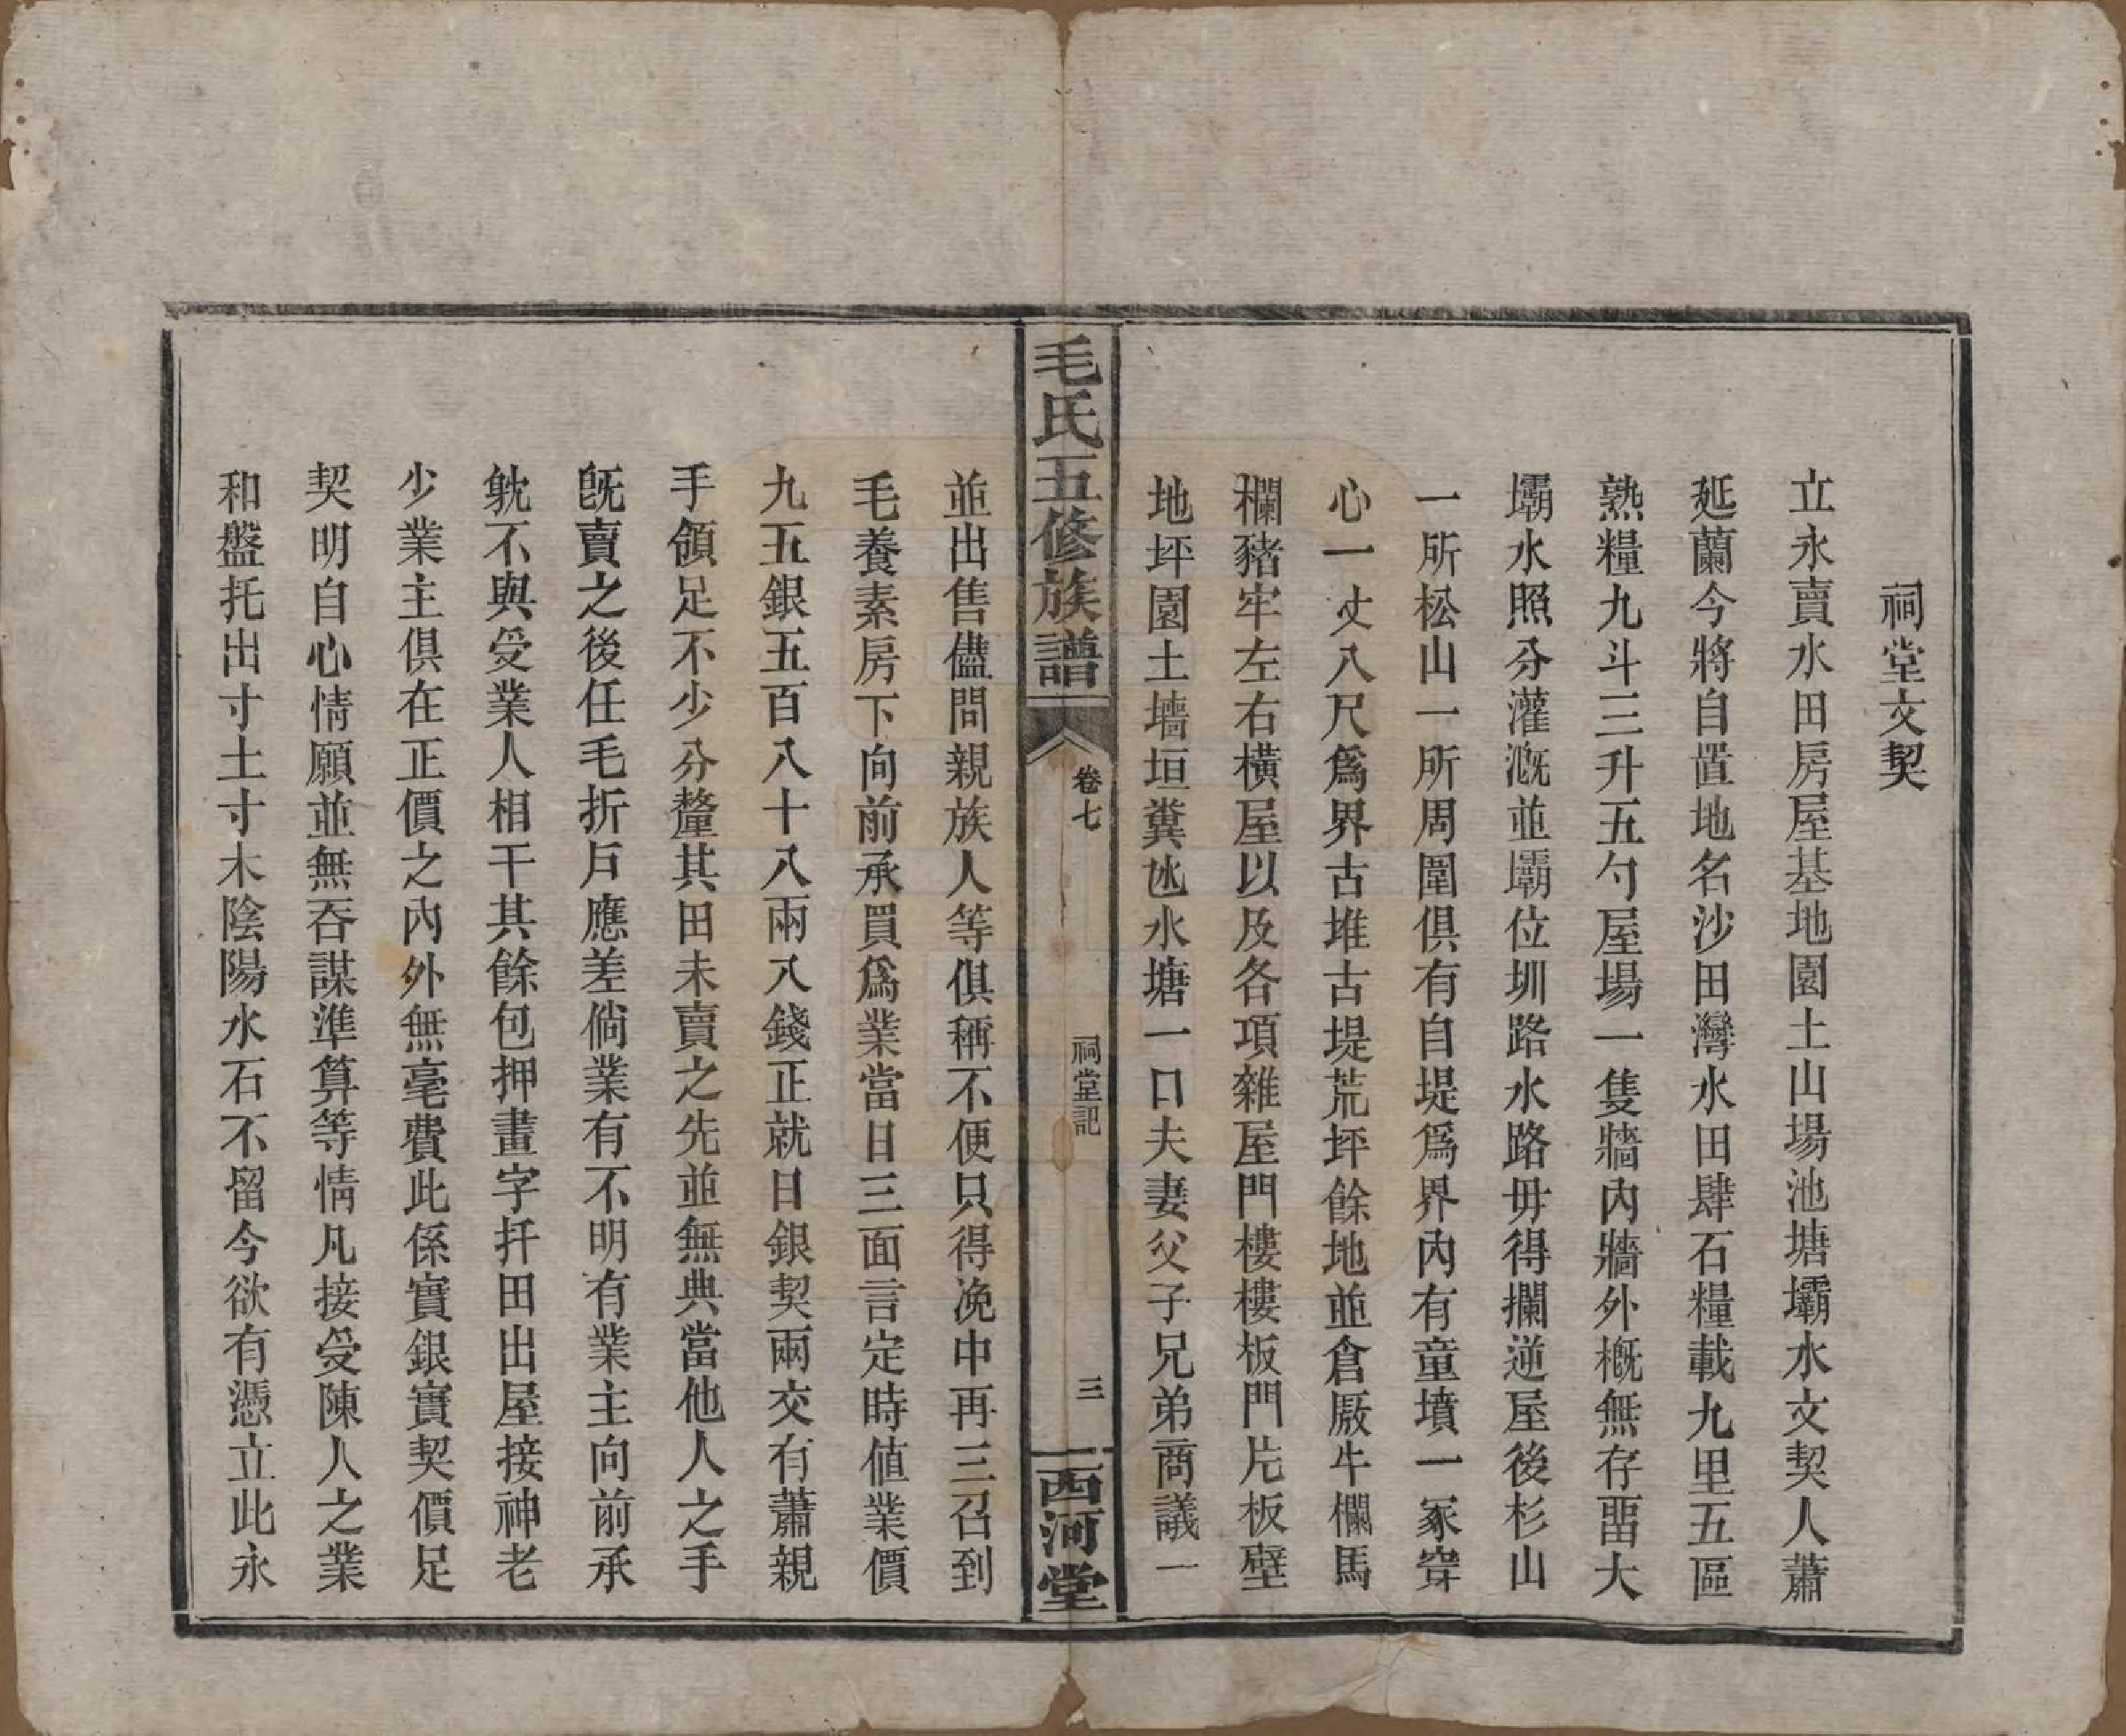 祠堂文契
立永賣水田房屋基地園土山場池塘壩水文契人蕭
延蘭今將自置地名沙田灣水田肆石糧載九里五區
熟糧九斗三升五勺屋場一隻牆內牆外概無存畱大
壩水照分灌溉並壩位圳路水路毋得攔逆屋後杉山
一所松山一所周圍俱有自堤爲界內有童墳一冢穿
心一丈八尺爲界古堆古堤荒坪餘地並倉厫牛欄馬
欄豬牢左右橫屋以及各項雜屋門樓樓板門片板壁
地坪園土墻垣糞氹水塘一口夫妻父子兄弟商議一
毛氏五修族譜
卷七
祠堂記
三
西河堂
並出售儘問親族人等俱稱不便只得浼中再三召到
毛養素房下向前承買爲業當日三面言定時值業價
九五銀五百八十八兩八錢正就日銀契兩交有蕭親
手領足不少分釐其田未賣之先並無典當他人之手
旣賣之後任毛折戶應差倘業有不明有業主向前承
躭不與受業人相干其餘包押畫字扦田出屋接神老
少業主俱在正價之內外無毫費此係實銀實契價足
契明自心情願並無吞謀準算等情凡接受陳人之業
和盤托出寸土寸木陰陽水石不留今欲有憑立此永